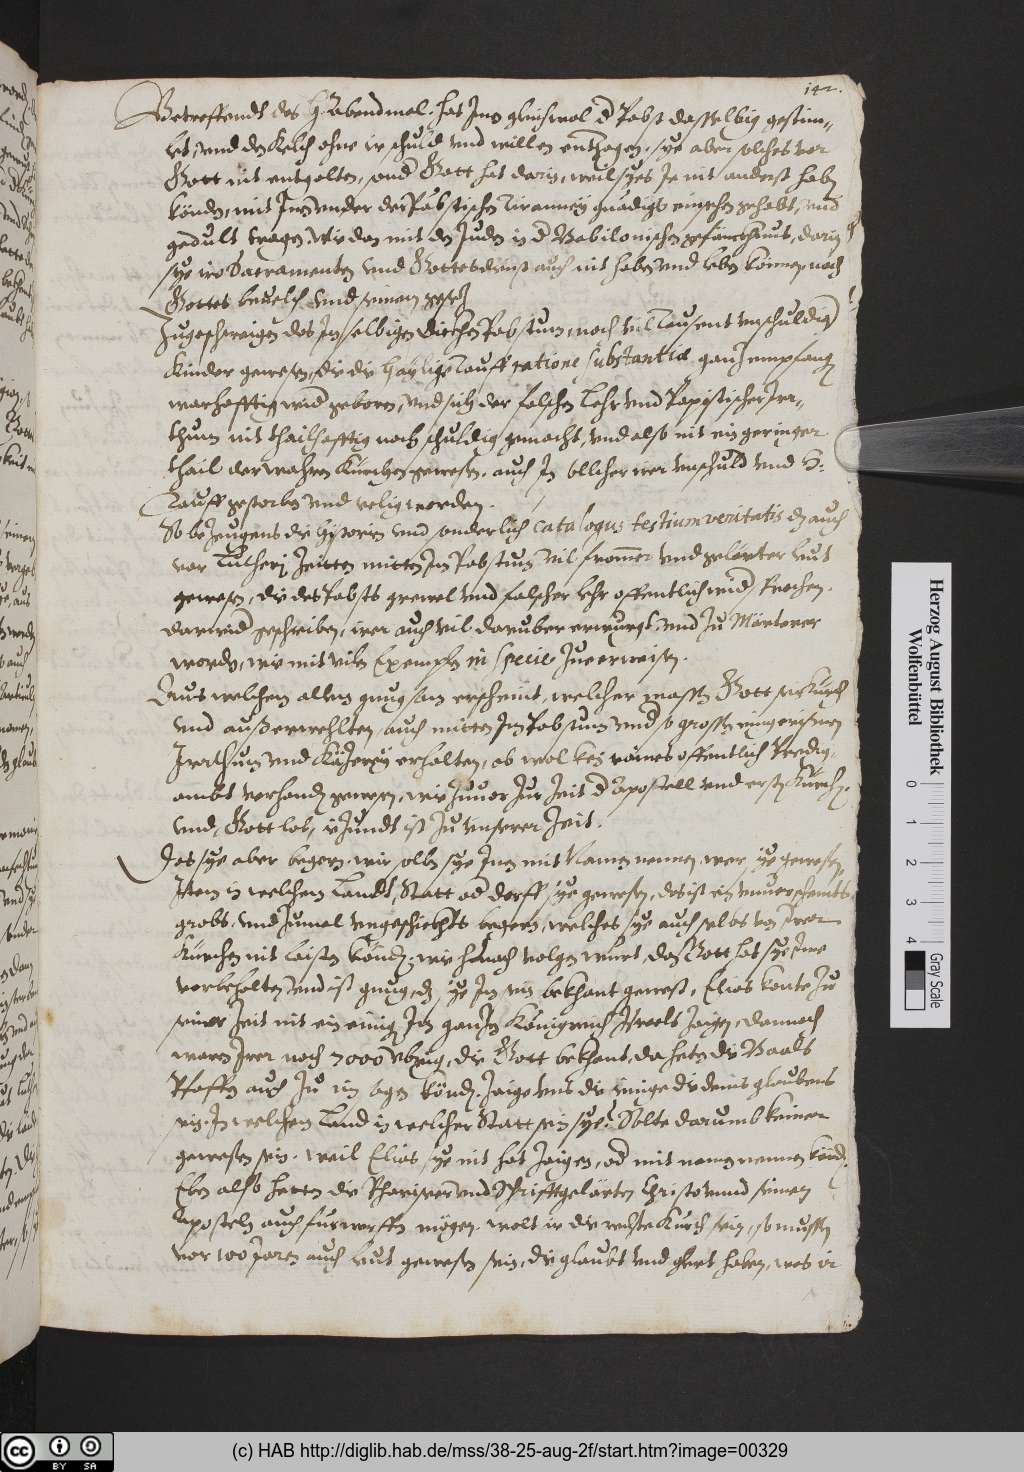 142.
Betreffendt des H. Abendmal. hat Inen gleichwol d Pabst dasselbig gestim-
let, und den Kelch ohne ir schuld und willen enthzogen. sye aber solches vor
Gott nit entgolten, sond Gott hat darin, weil sye es Je nit anderst haben
könden, mit Inen under der Päbstischen Tiranney gnädigs einsehen gehabt, und
gedult tragen, wie dan mit den Juden in d Babilonischen gefäncknus, darin
sye ire Sacramenten und Gottesdienst auch nit haben und leben können, nach
Gottes bevelch und seinem gesetz
Zugeschweigen das In selbigen Pabstum, noch vil tausent unschuldig
Kinder gewesen, die die haylige Tauff ratione substantiæ gantz empfangen
warhafftig wid geboren, und sich der falschen Lehr und Papistischer Irr-
thum nit thailhafftig noch schuldig gemacht, und also nit ein geringer
thail der wahren Kirchen gewesen. auch In sollcher irer unschuld und H.
Tauff gestorben und selig worden.
So bezeugens die Historien und sonderlich catalogus testium veritatis dz auch
vor Lutheri Zeitten mitten Im Pabstum vil frommer und gelerter leut
gewesen, die des Pabsts grewel und falscher lehr offentlich wid sprochen.
darwid geschriben, irer auch vil darüber erwürgt, und zu Märterer
worden, wie mit vilen Exempeln in specie zu erweisen.
Aus welchem allem gnugsam erscheint, welcher massen Gott sein Kirch
und ausserwehlten, auch mitten Im Pabstum und so grossen eingerisnen
Irrthum und Kätzerey erhalten, ob wol kein raines offentlich Predig-
ambt vorhanden gewesen, wie zuvor zur Zeit d Apostell und ersten Kirchen.
und, Gott lob, ietzundt ist zu unserer Zeit.
Das sye aber begern, wir sollen sye Inen mit Namen nennen, wer sye gewesen,
Item in welchem Landt, Statt od dorff sye gewesen, das ist ein unverschembts
grobs, und zumal ungeschickhts begern, welches sye auch selbs von Irer
Kirchen nit laisten könden, wie hernach volgen wirt, das Gott hat sye Ime
vorbehalten und ist gnug, dz sye Im sein bekhant gewest, Elias konte zu
seiner Zeit nit ein einigen Im gantzen Königreich Israels zaigen, dannoch
waren Irer noch 7000 übrig, die Gott bekhant, da heten die Baals
Pfaffen auch zu im sagen könden. zaige uns die Jenige die deins glaubens
sein. In welchem Land in welcher Statt sein sye? Solte darumb keiner
gewesen sein. weil Elias sye nit hat zaigen, od mit namen nennen könd.
Eben also hetten die Phariseer und Schrifftgelärten Christo und seinen
Aposteln auch fürwerffen mögen. wolt ir die rechte Kirch sein, so müssen
vor 100 Jaren auch leut gewesen sein, die glaubt und glert haben, was ir
Herzog August Bibliothek
Wolfenbüttel
0 1 2 3 4
Gray Scale
cc BY SA
(c) HAB http://diglib.hab.de/mss/38-25-aug-2f/start.htm?image=00329